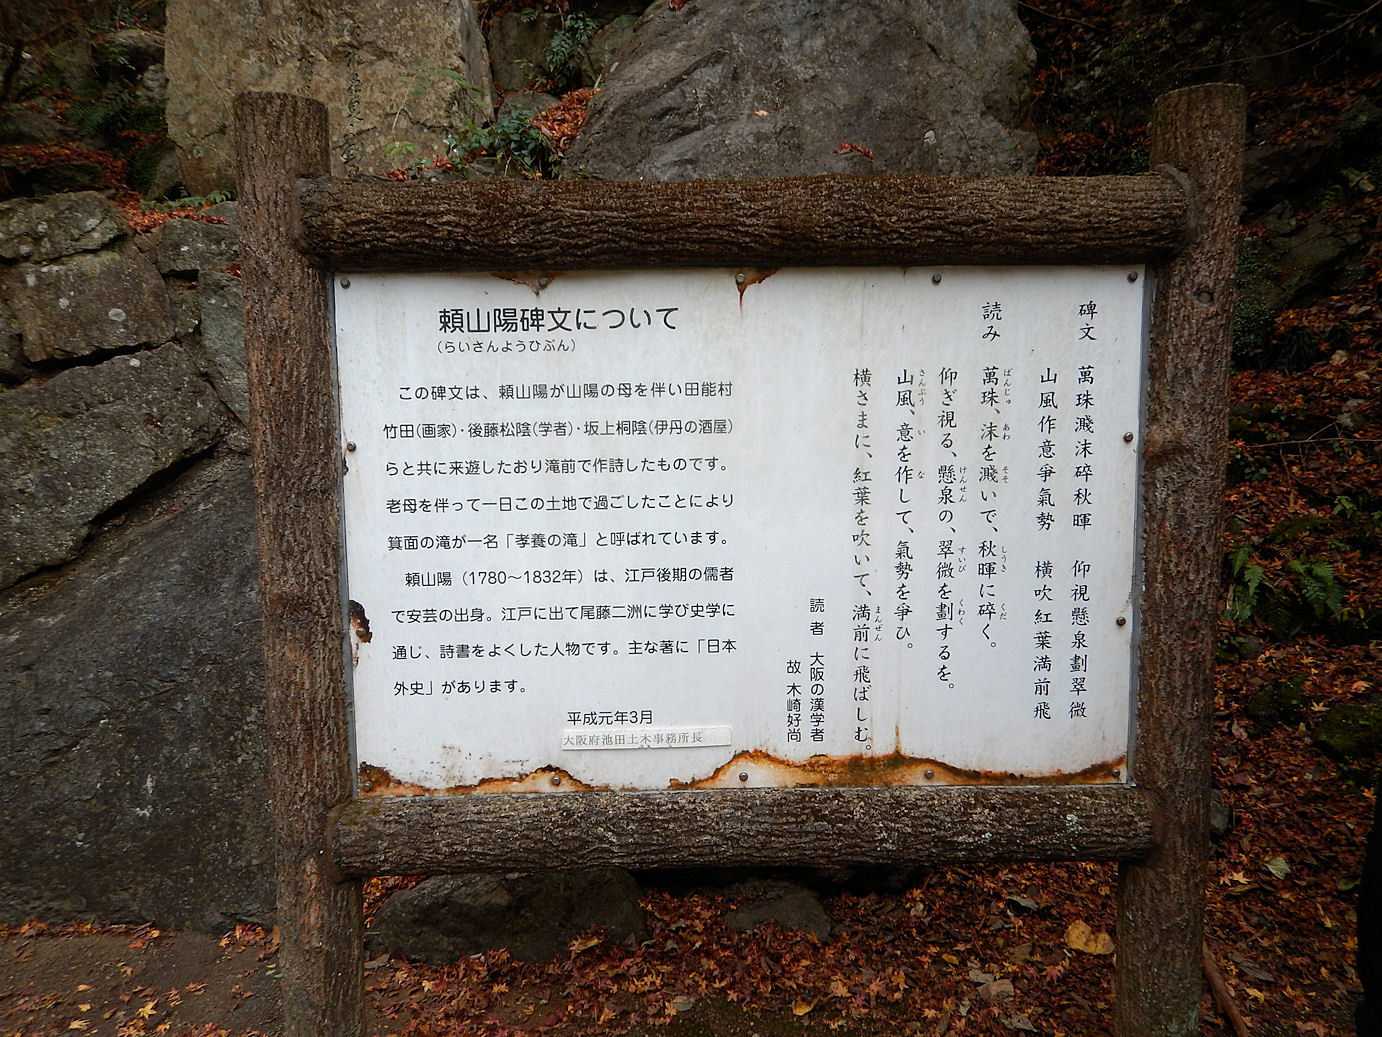 頼山陽碑文について
(らいさんようひぶん)
この碑文は、頼山陽が山陽の母を伴い田能村
竹田(画家)・後藤松陰(学者)・坂上桐陰(伊丹の酒屋)
らと共に来遊したおり滝前で作詩したものです。
老母を伴って一日この土地で過ごしたことにより
箕面の滝が一名「孝養の滝」と呼ばれています。
頼山陽（1780〜1832年）は、江戸後期の儒者
で安芸の出身。江戸に出て尾藤二洲に学び史学に
通じ、詩書をよくした人物です。主な著に「日本
外史」があります。
平成元年3月
大阪府池田土木事務所長
碑文 萬珠濺沫碎秋暉 仰視懸泉劃翠微
山風作意爭氣勢 横吹紅葉満前飛
読み 萬珠、沫を濺いで、秋暉に碎く。
ばんじゅ あわ そそ しうき くだ
仰ぎ視る、懸泉の、翠微を劃するを。
けんせん すいび くわく
山風、意を作して、氣勢を爭ひ。
さんぷう い な
横さまに、紅葉を吹いて、満前に飛ばしむ。
まんぜん
読者 大阪の漢学者
故 木崎好尚